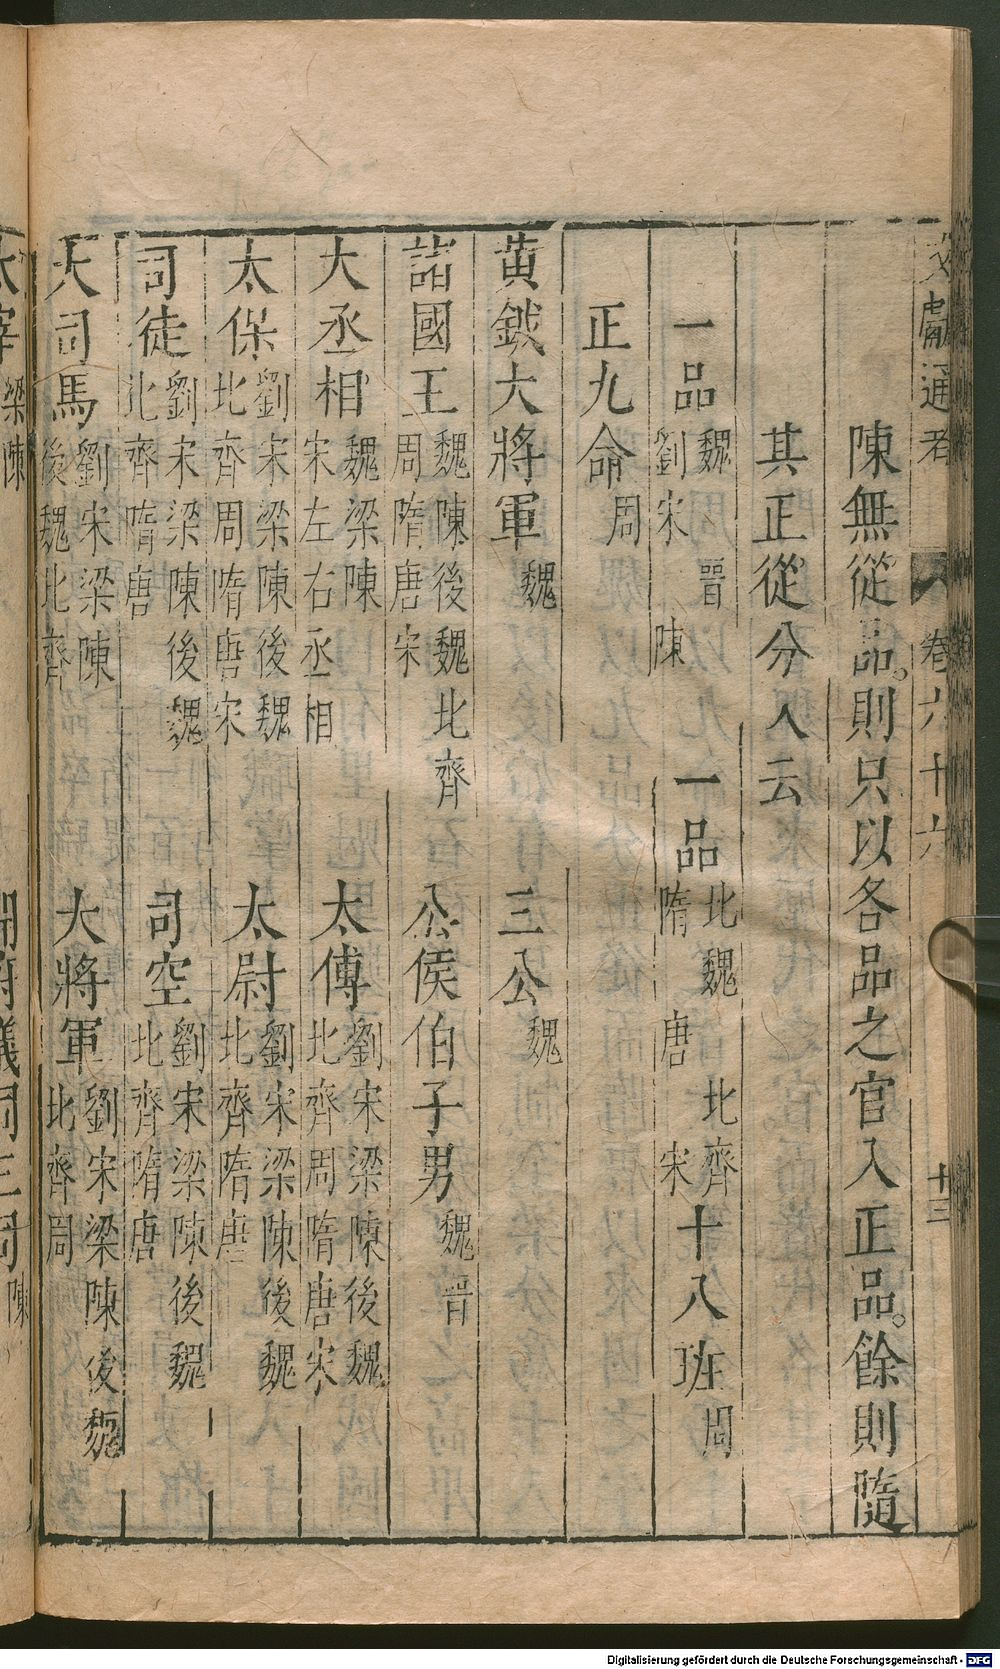 文獻通考 卷六十六 十三
陳無從品。則只以各品之官入正品。餘則隨
其正從分入云
一品 魏 晉 劉宋 陳 一品 北魏 北齊 隋 唐 宋 十八班 周
正九命 周
黃鉞大將軍 魏 三公 魏
諸國王 魏陳後魏北齊 周隋唐宋 公侯伯子男 魏晉
大丞相 魏梁陳 宋左右丞相 太傅 劉宋梁陳後魏 北齊周隋唐宋
太保 劉宋梁陳後魏 北齊周隋唐宋 太尉 劉宋梁陳後魏 北齊隋唐
司徒 劉宋梁陳後魏 北齊隋唐 司空 劉宋梁陳後魏 北齊隋唐
大司馬 劉宋梁陳 後魏北齊 大將軍 劉宋梁陳後魏 北齊周
太宰 梁陳 開府儀同三司 陳
Digitalisierung gefördert durch die Deutsche Forschungsgemeinschaft - DFG